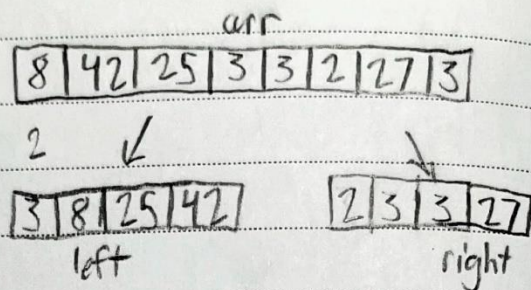 arr
8 42 25 3 3 2 27 3
2
3 8 25 42 2 3 3 27
left right